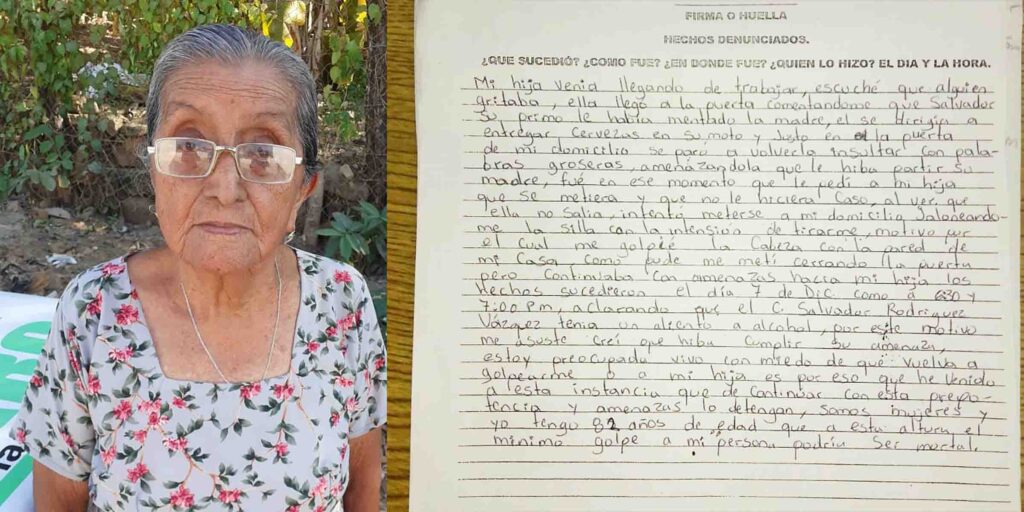 FIRMA O HUELLA
HECHOS DENUNCIADOS.
¿QUE SUCEDIÓ? ¿COMO FUE? ¿EN DONDE FUE? ¿QUIEN LO HIZO? EL DIA Y LA HORA.
Mi hija venia llegando de trabajar, escuché que alguien
gritaba, ella llegó a la puerta comentandome que Salvador
su primo le había mentado la madre, el se dirigia a
entregar cervezas en su moto y Justo en la puerta
de mi domicilio se paró a volverla insultar con pala-
bras groseras, amenázandola que le hiba partir su
madre, fué en ese momento que le pedi a mi hija
que se metiera y que no le hiciera caso, al ver que
ella no salia, intentó meterse a mi domicilio Jaloneando-
me la silla con la intensión de tirarme, motivo por
el cual me golpeé la Cabeza con la pared de
mi Casa, como pude me metí cerrando la puerta
pero continuaba con amenazas hacia mi hija los
Hechos sucedieron el día 7 de Dic. como a 6:30 y
7:00 Pm, aclarando que el C. Salvador Rodríguez
Vázquez tenia un aliento a alcohol, por este motivo
me asuste creí que hiba cumplir su amenaza,
estoy preocupada vivo con miedo de que vuelva a
golpearme o a mi hija es por eso que he venido
a esta instancia que de continuar con esta prepo-
tencia y amenazas lo detengan, somos mujeres y
yo tengo 82 años de edad que a esta altura el
minimo golpe a mi persona podría ser mortal.